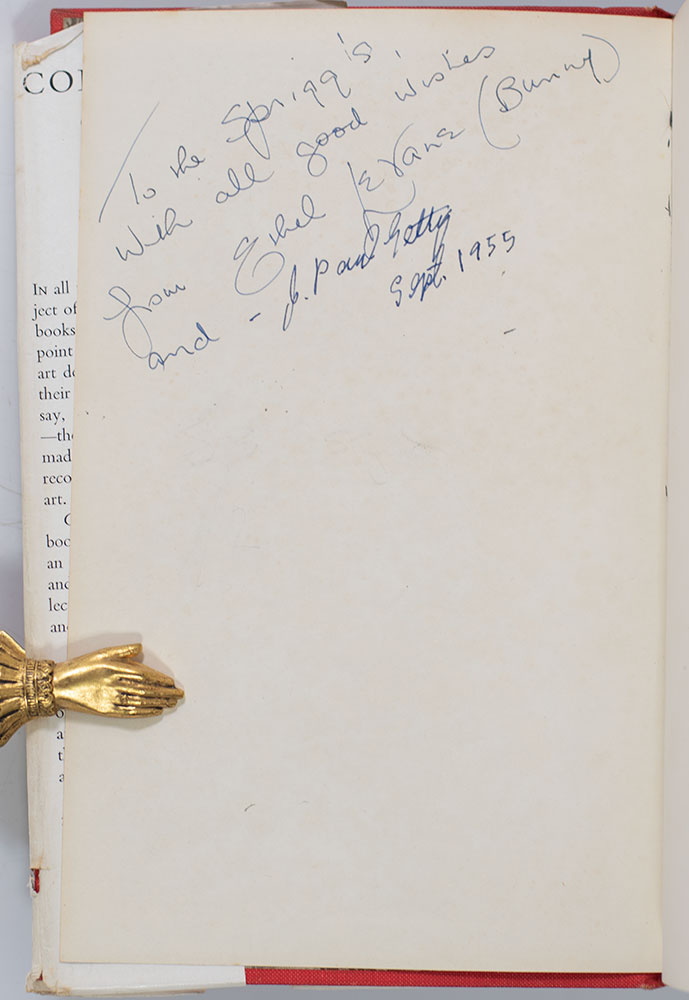 To the Sprigg's,
With all good wishes
from Ethel Evans (Bunny)
and - J. Paul Getty
Sept. 1955
CO
IN all
ject of
books
point
art de
their
say,
—th
mad
reco
art.
boo
an
and
lec
an